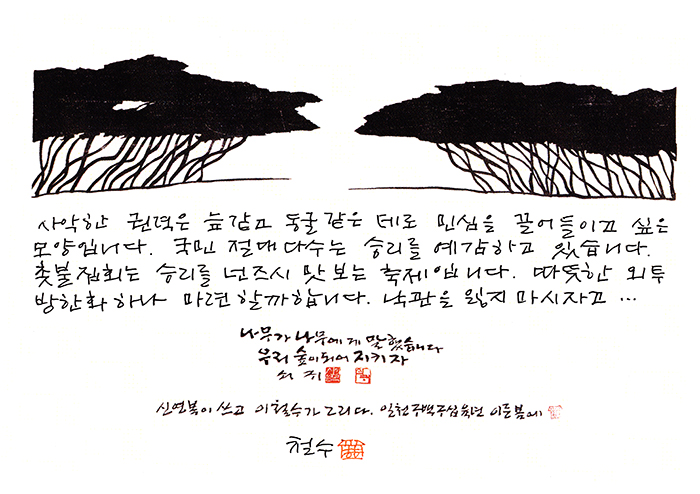 사악한 권력은 늪같고 동굴같은 데로 민심을 끌어들이고 싶은
모양입니다. 국민 절대다수는 승리를 예감하고 있습니다.
촛불집회는 승리를 넌즈시 맛보는 축제입니다. 따뜻한 외투
방한화 하나 마련할까합니다. 낙관을 잃지 마시자고 …
나무가 나무에게 말했습니다
우리 숲이되어 지키자
쇠귀
신영복이 쓰고 이철수가 그리다. 일천구백구십육년 이른봄에
철수